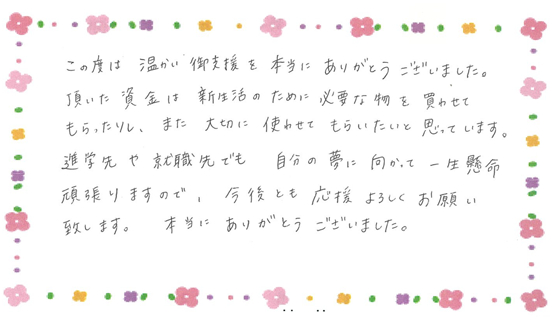 この度は 温かい御支援を本当に ありがとうございました。
頂いた資金は新生活のために必要な物を買わせて
もらったりし、また 大切に使わせてもらいたいと思っています。
進学先や就職先でも 自分の夢に向かって一生懸命
頑張りますので、今後とも応援よろしくお願い
致します。 本当にありがとうございました。